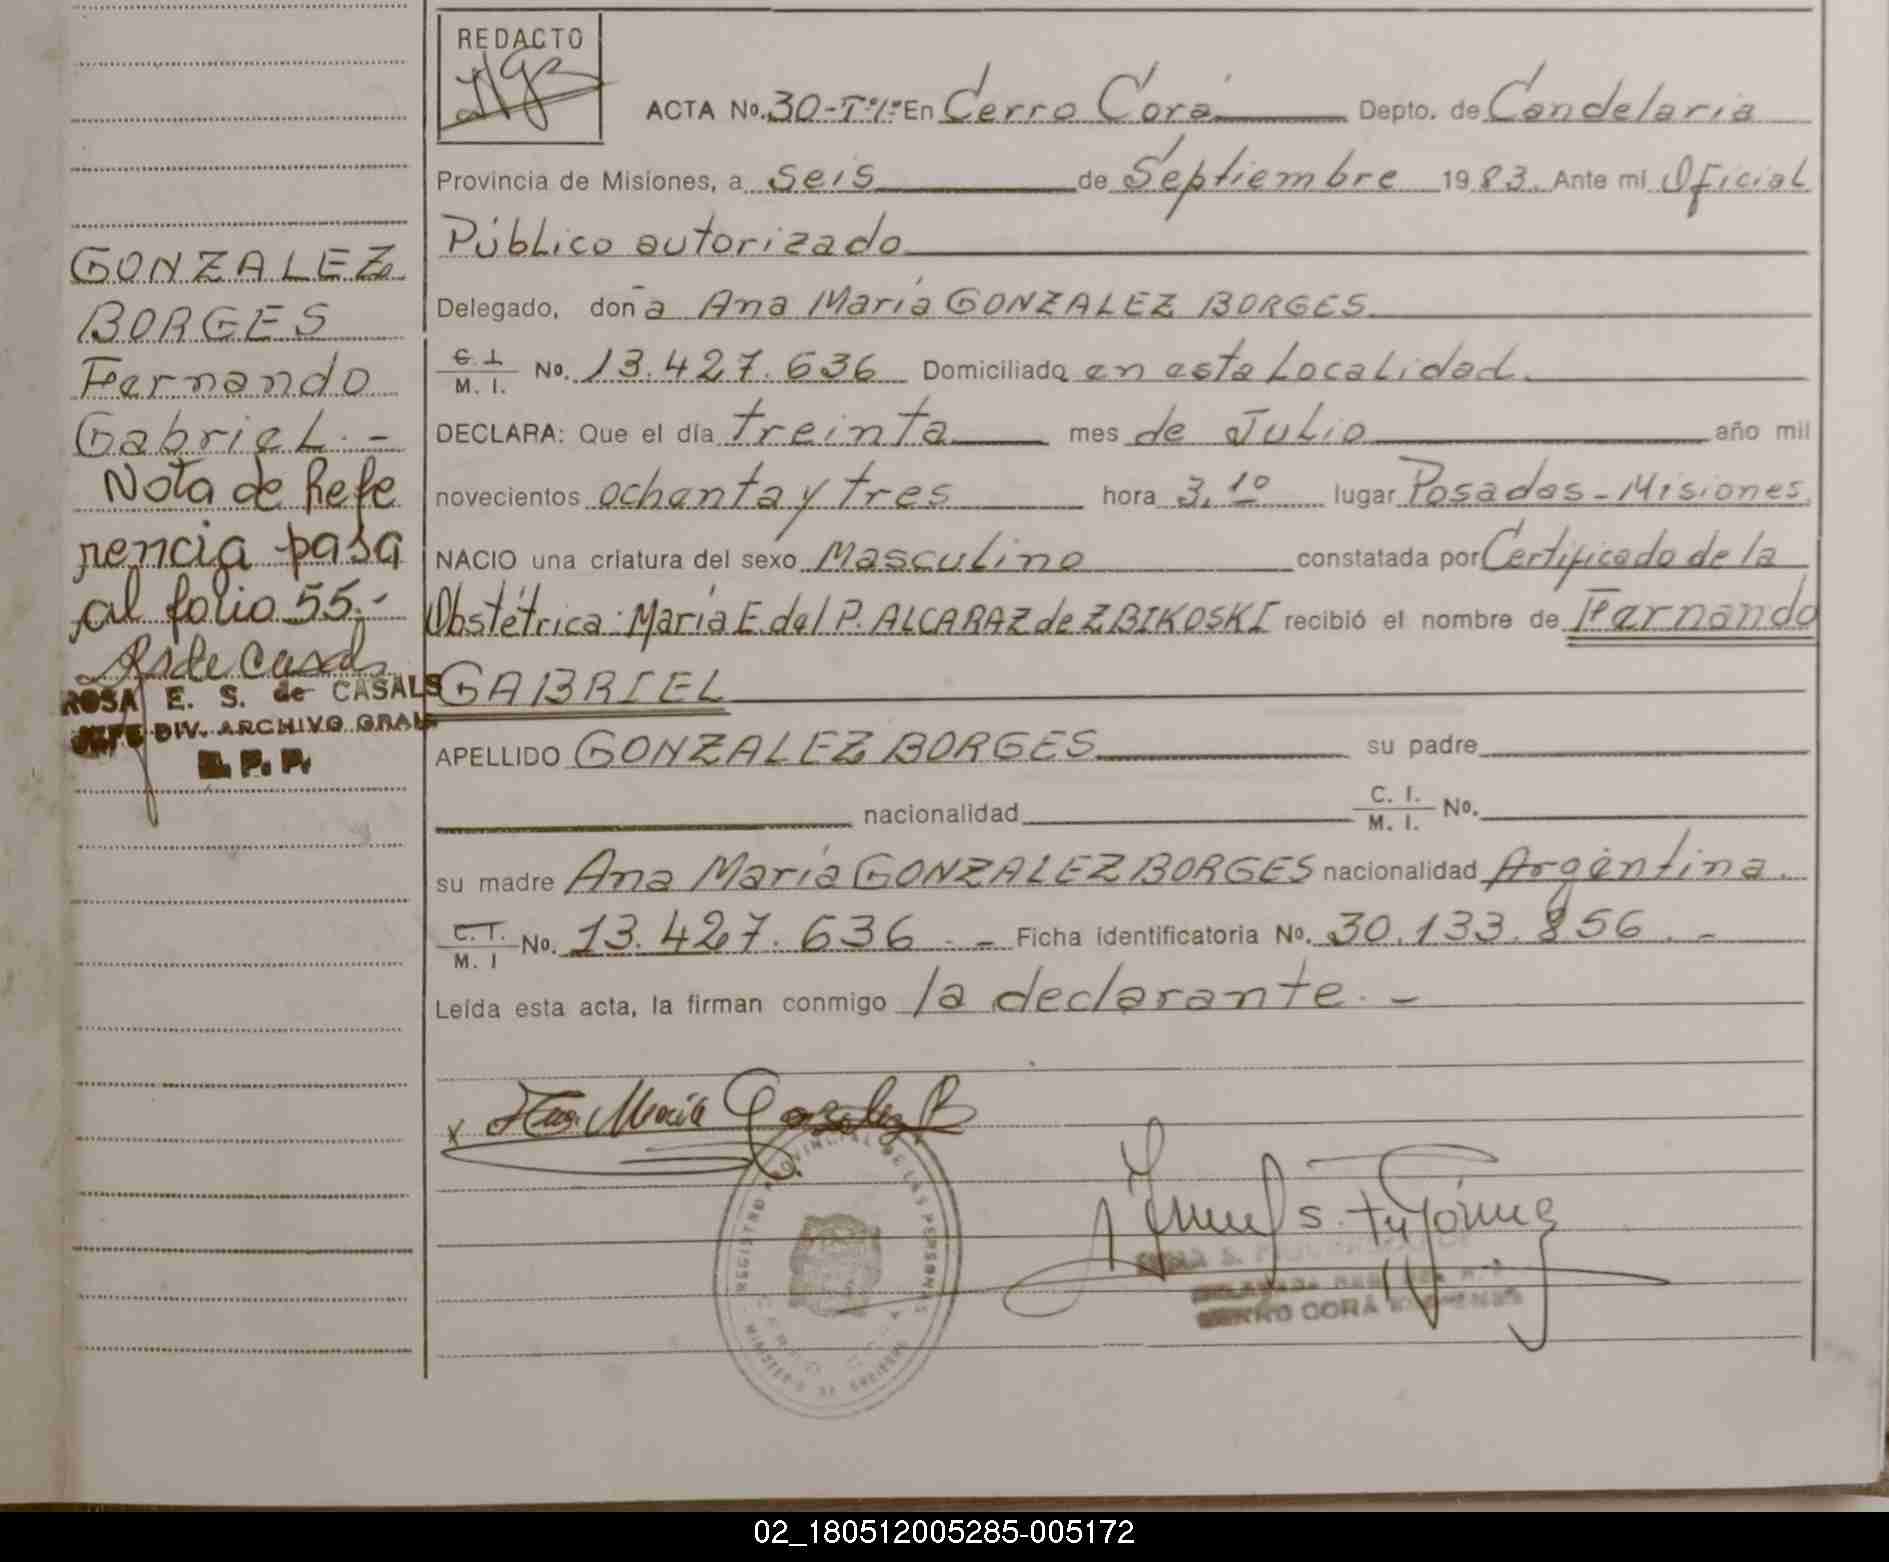 REDACTO
ACTA No. 30-Tº1º En Cerro Corá Depto. de Candelaria
Provincia de Misiones, a seis de Septiembre 1983. Ante mí Oficial
Público autorizado
Delegado, doña Ana María GONZALEZ BORGES
C. I. M. I. No. 13.427.636 Domiciliada en esta Localidad.
DECLARA: Que el día treinta mes de Julio año mil
novecientos ochenta y tres hora 3,10 lugar Posadas-Misiones.
NACIO una criatura del sexo Masculino constatada por Certificado de la
Obstétrica: María E. del P. ALCARAZ de ZBIKOSKI recibió el nombre de Fernando
GABRIEL
APELLIDO GONZALEZ BORGES su padre
nacionalidad C. I. M. I. No.
su madre Ana María GONZALEZ BORGES nacionalidad Argentina.
C. I. M. I No. 13.427.636.- Ficha identificatoria No. 30.133.856.-
Leída esta acta, la firman conmigo la declarante.-
GONZALEZ
BORGES
Fernando
Gabriel.-
Nota de Refe
rencia pasa
al folio 55.-
ROSA E. S. de CASALS
JEFE DIV. ARCHIVO GRAL
R. P. P.
x Ana María Gonzalez B
REGISTRO PROVINCIAL DE LAS PERSONAS
CERRO CORA
MINISTERIO DE GOBIERNO
CERRO CORA MISIONES
02_180512005285-005172